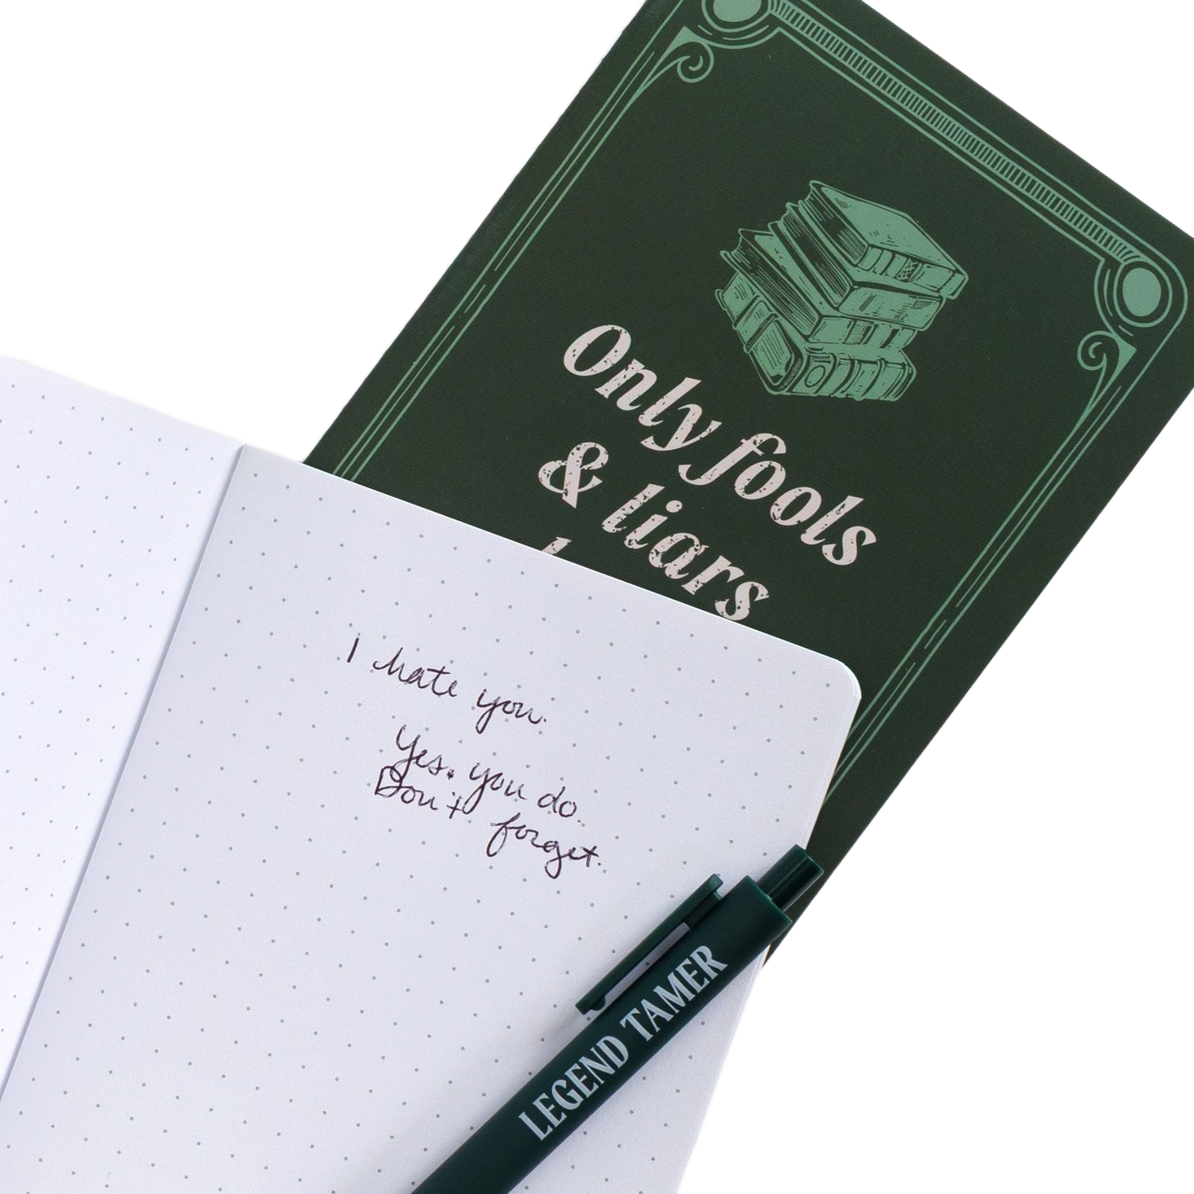 Only fools
& liars
I hate you.
Yes. you do.
Don't forget.
LEGEND TAMER